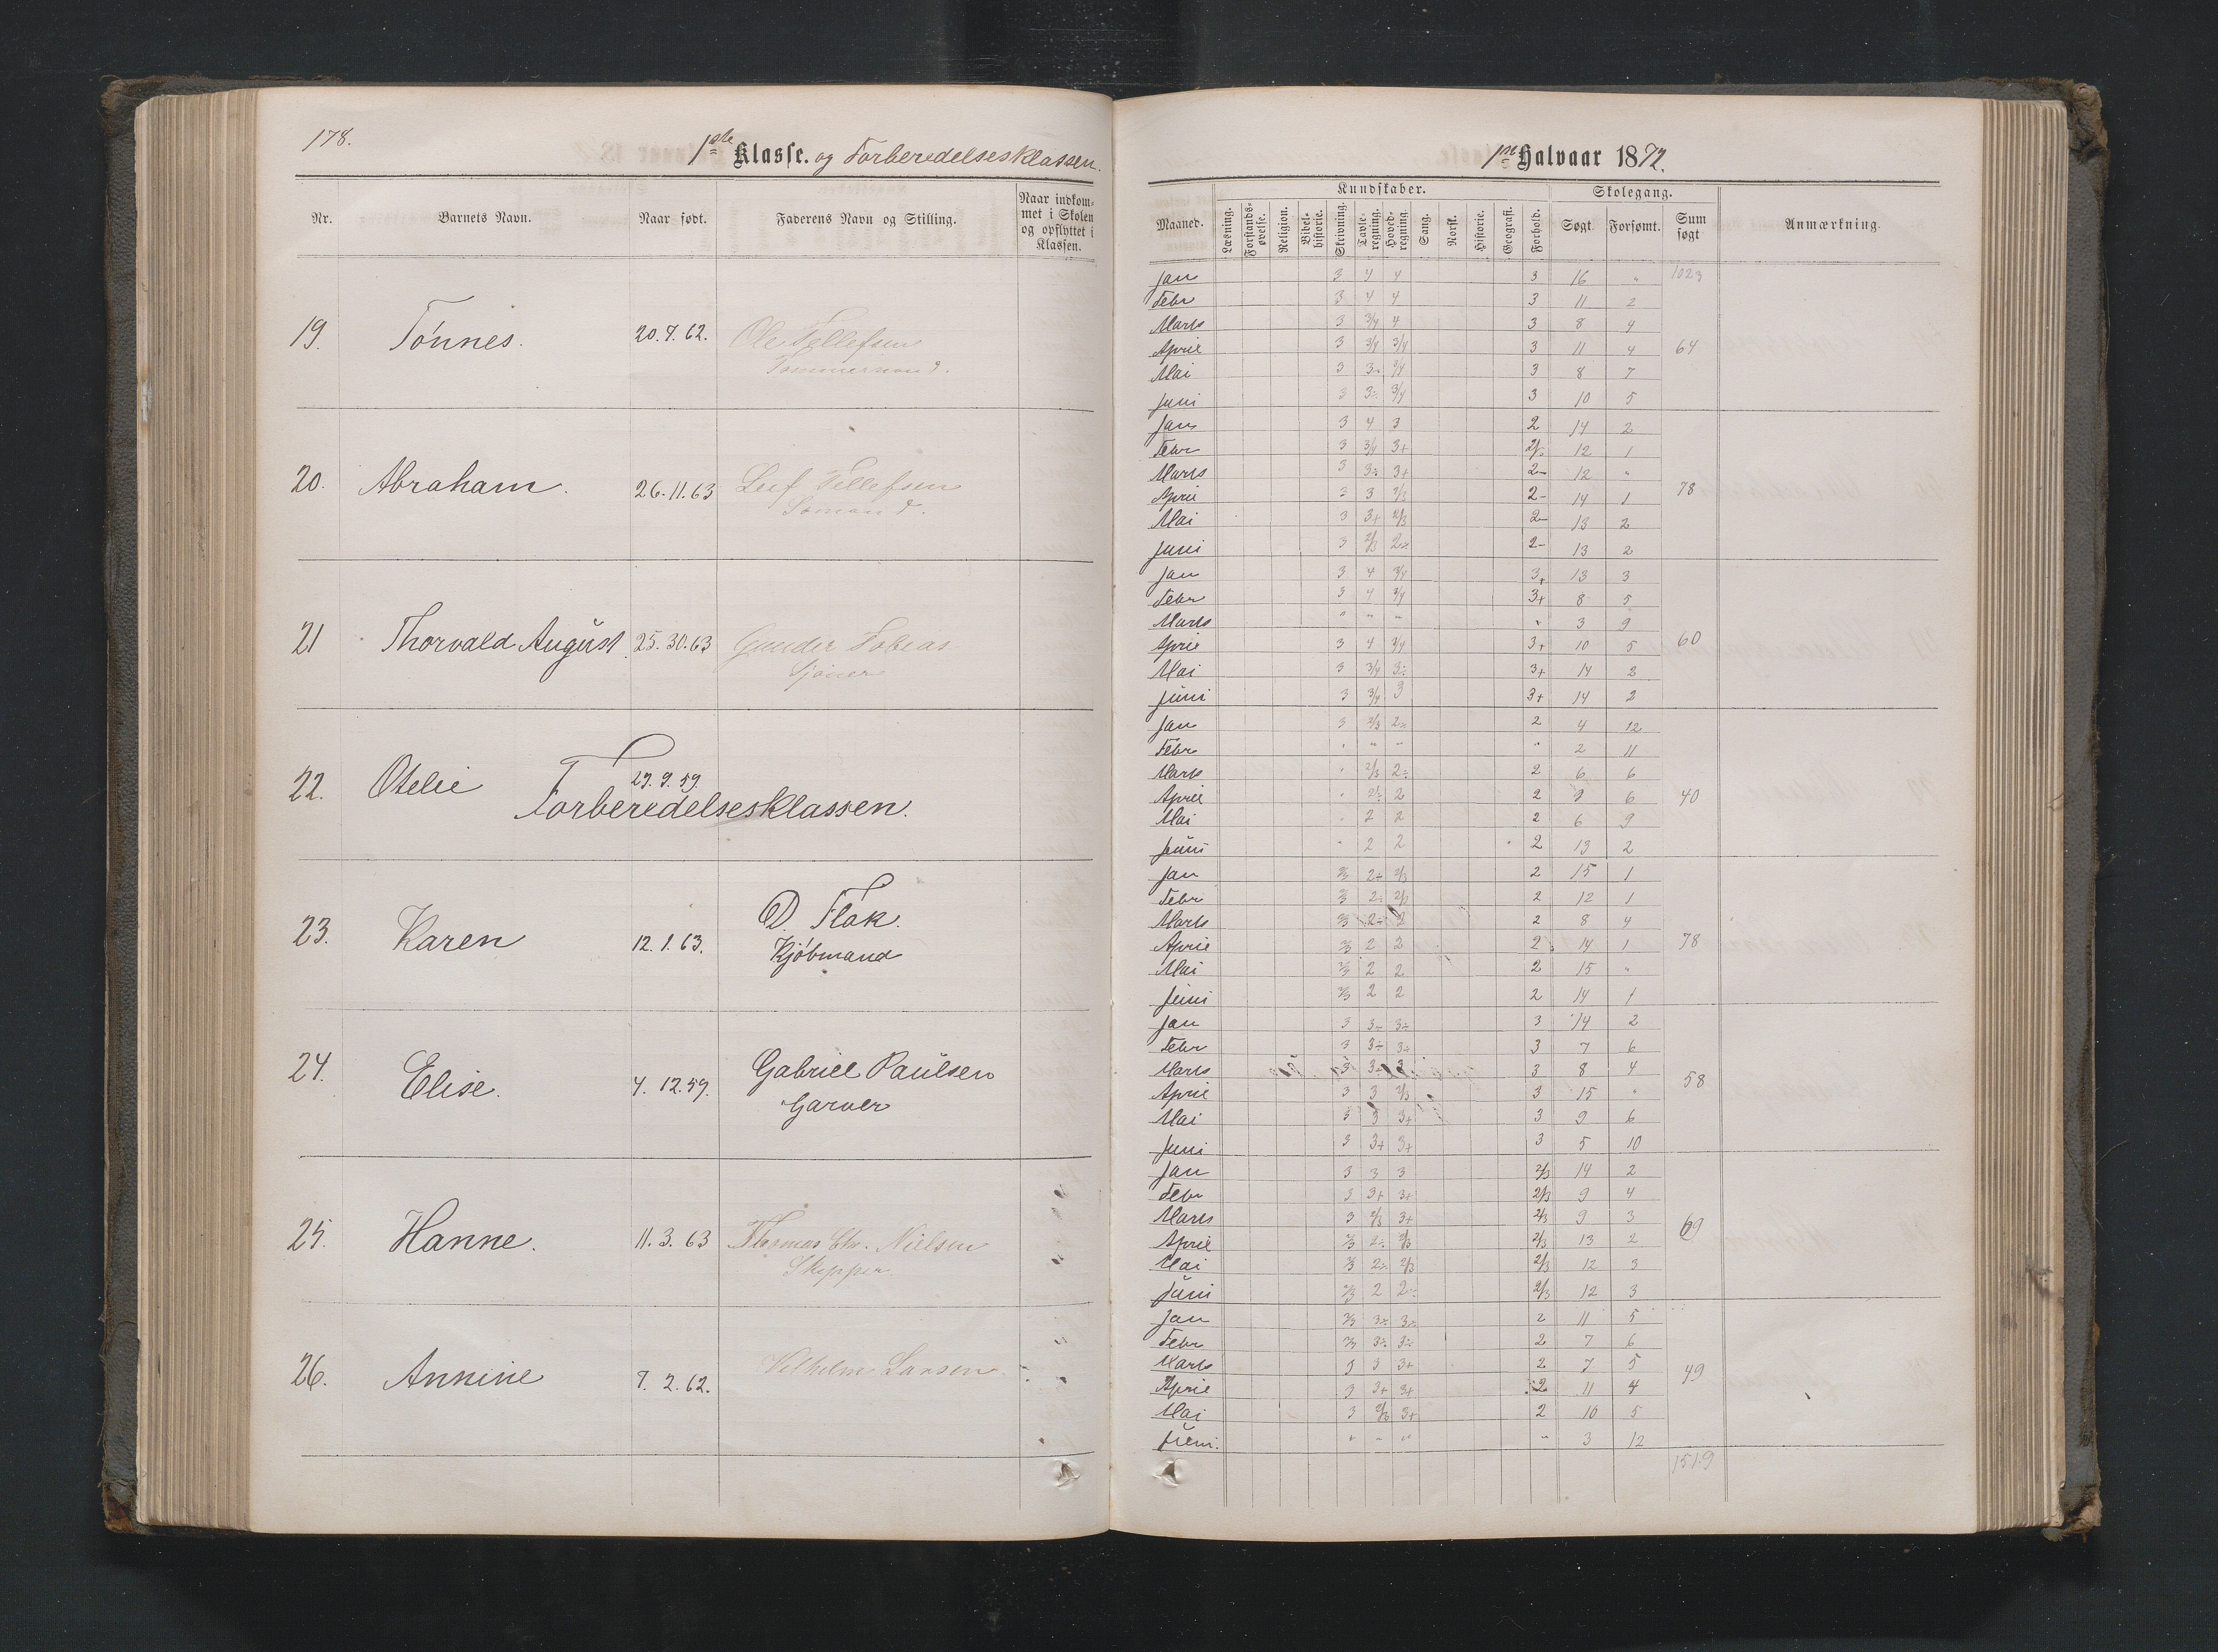 178.
1ste Klasse. og Forberedelsesklassen.
Nr. Barnets Navn. Naar født. Faderens Navn og Stilling. Naar indkom-
met i Skolen
og opflyttet i
Klassen.
19. Tønnes. 20.7.62. Ole Tellefsen
Tømmermand.
20. Abraham. 26.11.63 Leif Tellefsen
Sømand.
21 Thorvald August 25.30.63 Gunder Tobias
22. Otelie 29.9.59.
Forberedelsesklassen.
23. Karen 12.1.63. D. Flak.
Kjøbmand
24. Elise. 4.12.59. Gabriel Paulsen
Garver
25. Hanne. 11.3.63 Thomas Chr. Nielsen
Skipper.
26. Annine 7.2.62. Vilhelm Larsen
1ste Halvaar 1872.
Maaned. Kundskaber. Skolegang. Sum
søgt Anmærkning.
Læsning. Forstands-
øvelse. Religion. Bibel-
historie. Skrivning. Tavle-
regning. Hoved-
regning. Sang. Norsk. Historie. Geografi. Forhold. Søgt. Forsømt.
Jan 3 4 4 3 16 " 1023
Febr 3 4 4 3 11 2
Marts 3 3/4 4 3 8 4
April 3 3/4 3/4 3 11 4 64
Mai 3 3÷ 3/4 3 8 7
Juni 3 3÷ 3/4 3 10 5
Jan 3 4 3 2 14 2
Febr 3 3/4 3+ 2÷ 12 1
Marts 3 3÷ 3+ 2- 12 "
April 3 3 2/3 2- 14 1 78
Mai 3 3+ 2/3 2- 13 2
Juni 3 2/3 2÷ 2- 13 2
Jan 3 4 3/4 3+ 13 3
Febr 3 4 3/4 3+ 8 5
Marts " " " " 3 9
April 3 4 3/4 3+ 10 5 60
Mai 3 3/4 3÷ 3+ 14 2
Juni 3 3/4 3 3+ 14 2
Jan 3 2/3 2÷ 2 4 12
Febr " " " " 2 11
Marts " 2/3 2÷ 2 6 6
April " 2÷ 2 2 9 6 40
Mai " 2 2 2 6 9
Juni " 2 2 2 13 2
Jan 2/3 2÷ 2/3 2 15 1
Febr 2/3 2÷ 2/3 2 12 1
Marts 2/3 2÷ 2 2 8 4
April 2/3 2 2 2 14 1 78
Mai 2/3 2 2 2 15 "
Juni 2/3 2 2 2 14 1
Jan 3 3÷ 3÷ 3 14 2
Febr 3 3÷ 3÷ 3 7 6
Marts 3 3÷ 3 3 8 4
April 3 3 2/3 3 15 " 58
Mai 3 3 3+ 3 9 6
Juni 3 3+ 3+ 3 5 10
Jan 3 3 3 2/3 14 2
Febr 3 3+ 3+ 2/3 9 4
Marts 3 2/3 3+ 2/3 9 3 69
April 2/3 2÷ 2/3 2/3 13 2
Mai 2/3 2÷ 2/3 2/3 12 3
Juni 2/3 2 2÷ 2/3 12 3
Jan 2/3 3÷ 3÷ 2 11 5
Febr 2/3 3÷ 3÷ 2 7 6
Marts 3 3 3+ 2 7 5 49
April 3 3+ 3+ 2 11 4
Mai 3 2/3 3+ 2 10 5
Juni. " " " " 3 12
1519